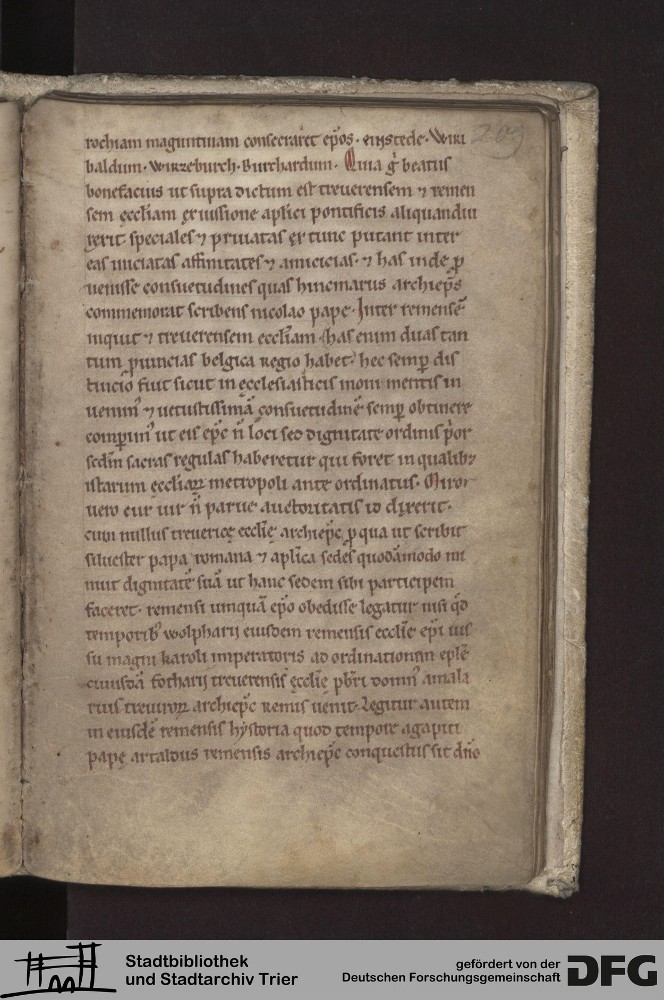 rochiam maguntinam consecraret ep̄os · eihstede · Wiri
baldum · wirzeburch · Burchardum · Quia gͥ beatus
bonefacius ut supra dictum est treuerensem ⁊ remen
sem ęccl̄iam ex iussione apl̄ici pontificis aliquandiu
rexerit speciales ⁊ priuatas ex tunc putant inter
eas iniciatas affinitates ⁊ amicicias · ⁊ has inde ꝓ
uenisse consuetudines quas hincmarus archiep̄s
commemorat scribens nicolao papę · Inter remensē
inquit ⁊ treuerensem eccl̄iam · has enim duas tan
tum ꝓuincias belgica regio habet · hec semꝑ dis
tinctio fuit sicut in ęcclesiasticis monimentis in
uenim᷒ ⁊ uetustissimā consuetudinē semꝑ obtinere
comperim᷒ ut eis ep̄c n̄ loci sed dignitate ordinis pͥor
scd̄m sacras regulas haberetur qui foret in qualibꝫ
istarum ęccl̄iaꝝ metropoli ante ordinatus · Miror
uero cur uir n̄ paruę auctoritatis id dixerit ·
cum nullus treuericę eccl̄ię archiep̄c ꝓ qua ut scribit
siluester papa romana ⁊ apl̄ica sedes quodāmodo mi
nuit dignitatē suā ut hanc sedem sibi participem
faceret · remensi umquā ep̄o obedisse legatur nisi qͦd
temporibꝰ wolpharii eiusdem remensis eccl̄ie ep̄i ius
su magni karoli imperatoris ad ordinationem ep̄lē
cuiusdā fotharij treuerensis ęccl̄ię pb̄ri domn᷒ amala
rius treuiroꝝ archiep̄c remis uenit · Legitur autem
in eiusdē remensis hystoria quod tempore agapiti
papę artaldus remensis archiep̄c conquestus sit dn̄o
209
Stadtbibliothek
und Stadtarchiv Trier
gefördert von der
Deutschen Forschungsgemeinschaft
DFG